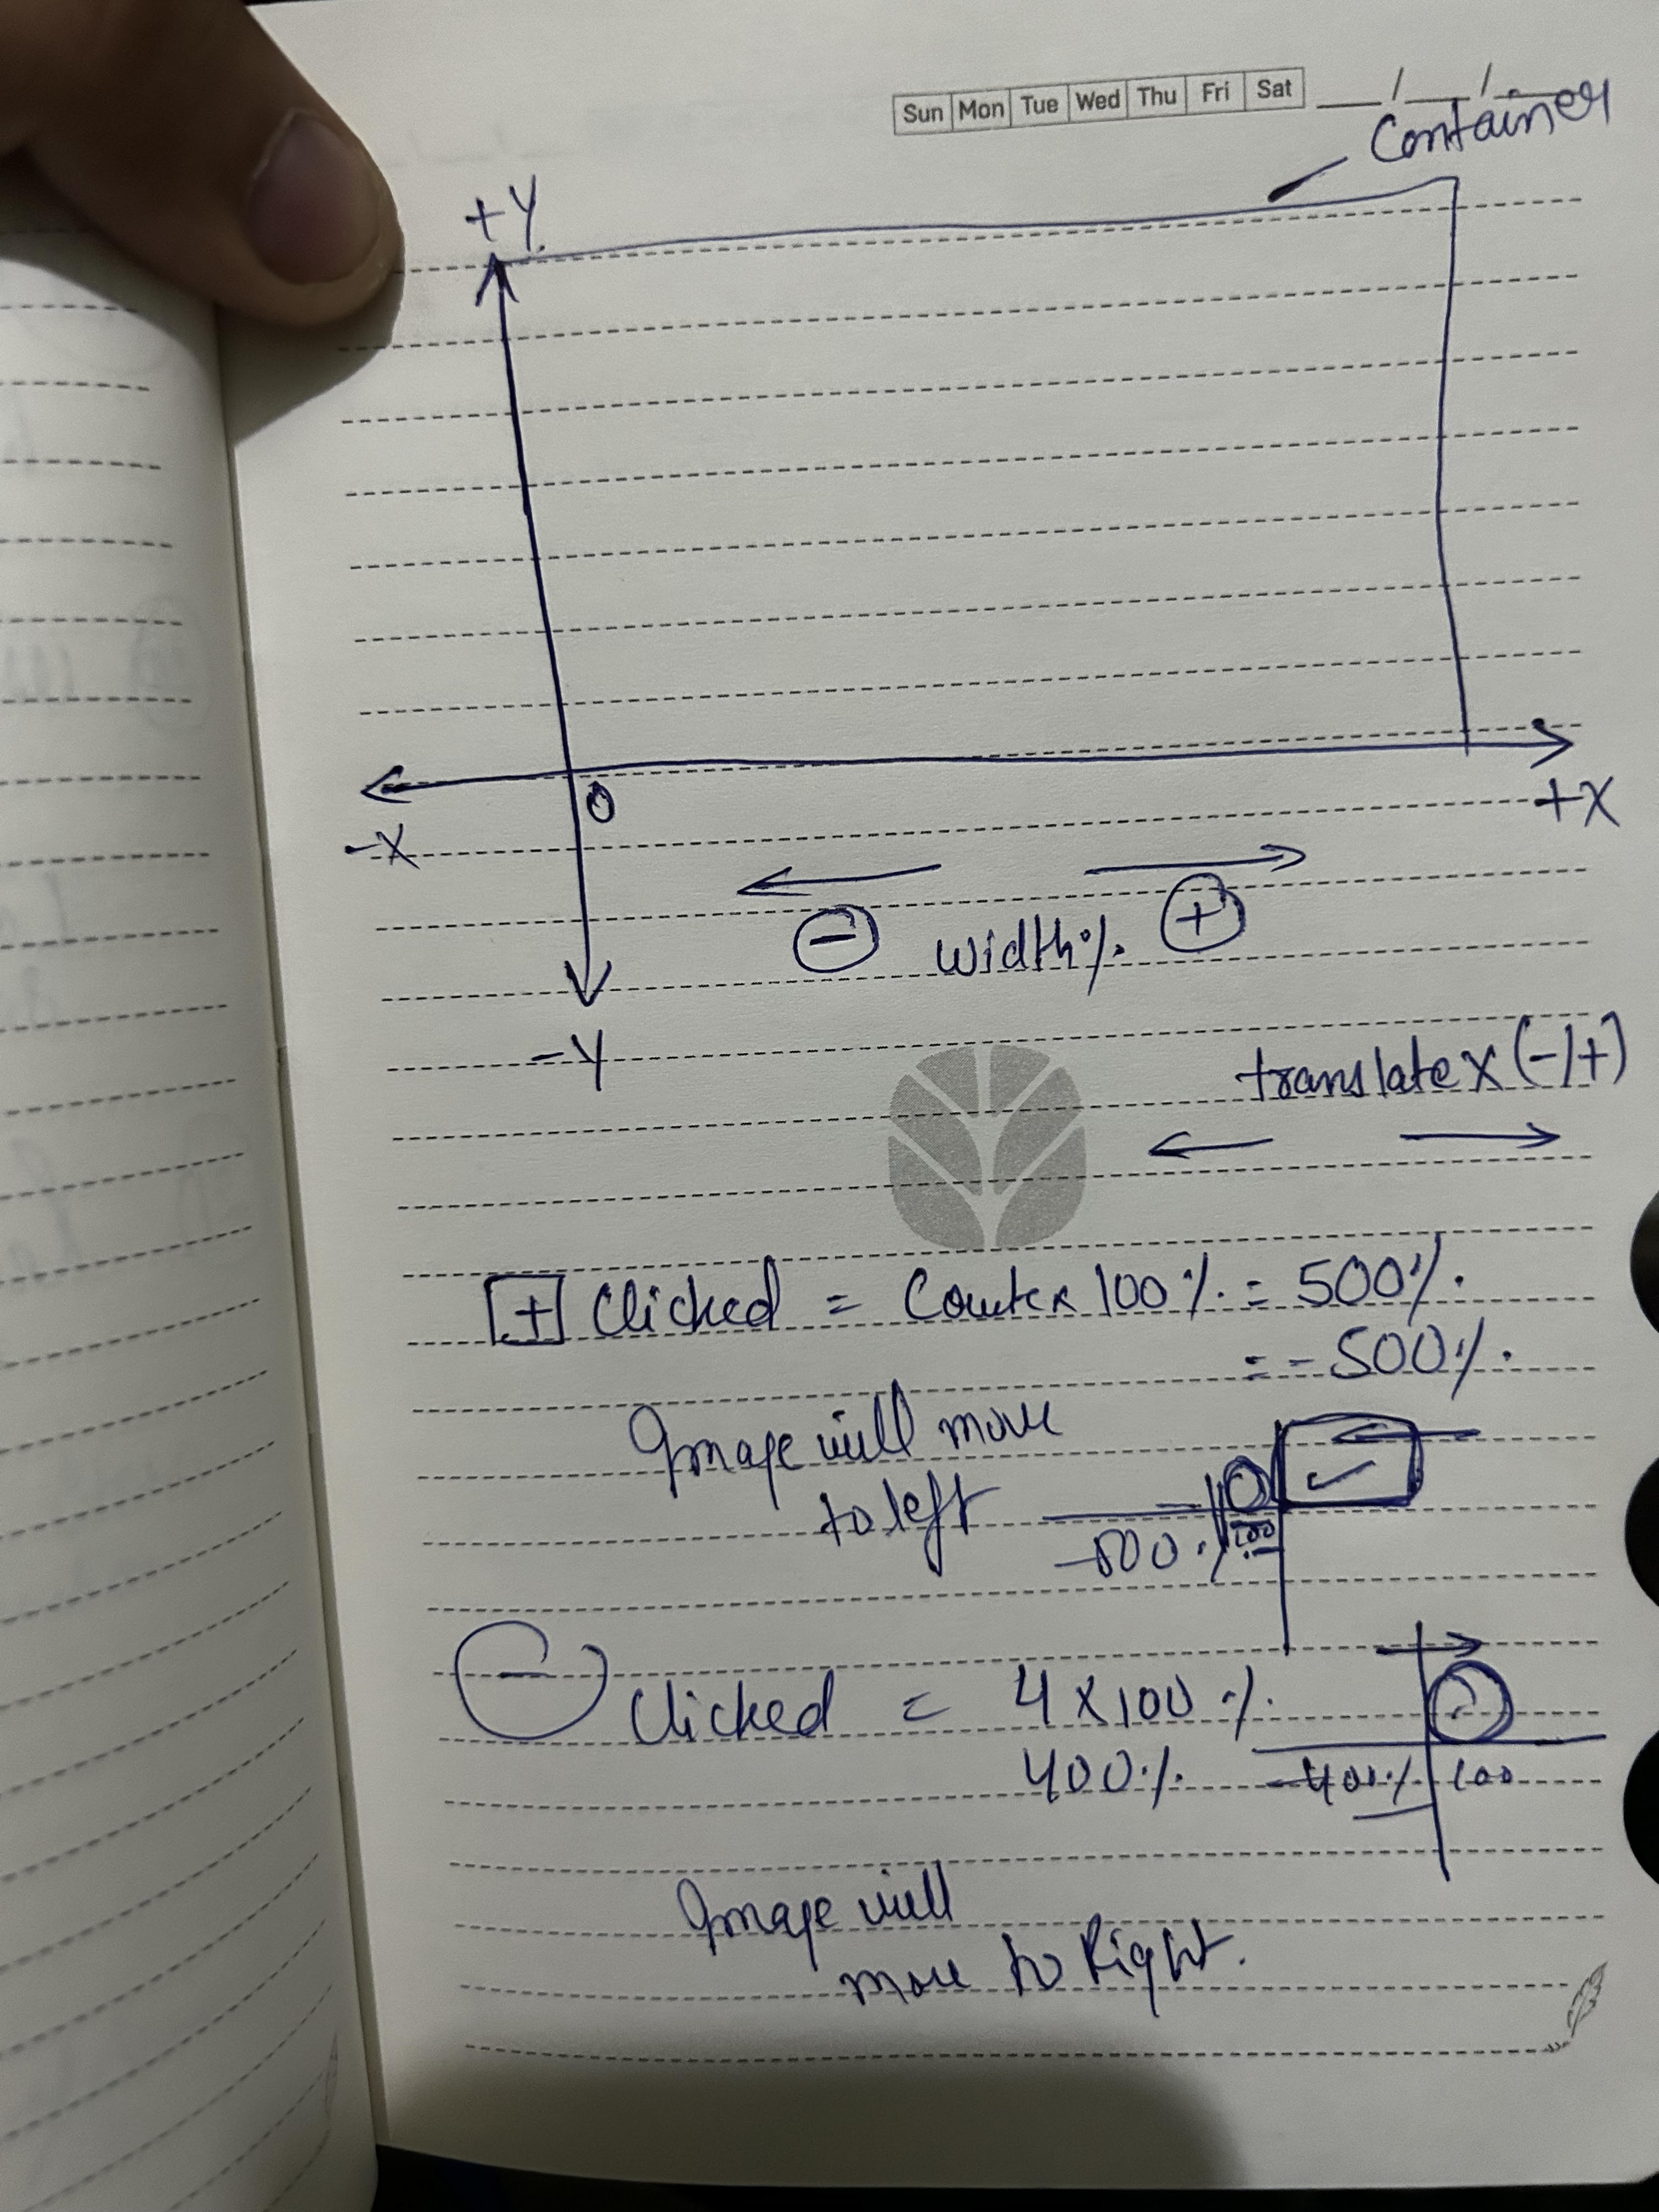 Sun Mon Tue Wed Thu Fri Sat __/__/__
Container
+Y
O
-X
+X
- width% +
-Y
translate X (-/+)
+ Clicked = Counter 100% = 500%.
= -500%.
Image will move
to left
-500% 100
- Clicked = 4 X 100%.
400%. -400% 100
Image will
move to Right.